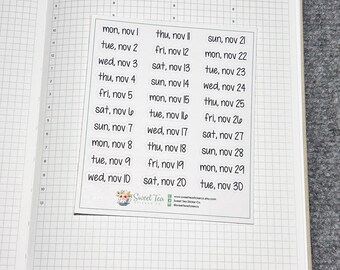 mon, nov 1
tue, nov 2
wed, nov 3
thu, nov 4
fri, nov 5
sat, nov 6
sun, nov 7
mon, nov 8
tue, nov 9
wed, nov 10
thu, nov 11
fri, nov 12
sat, nov 13
sun, nov 14
mon, nov 15
tue, nov 16
wed, nov 17
thu, nov 18
fri, nov 19
sat, nov 20
sun, nov 21
mon, nov 22
tue, nov 23
wed, nov 24
thu, nov 25
fri, nov 26
sat, nov 27
sun, nov 28
mon, nov 29
tue, nov 30
Sweet Tea